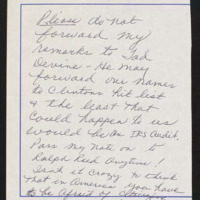 Please do not
forward my
remarks to Tad
Devine - He may
forward our names
to Clintons hit list
& the least that
could happen to us
would be an IRS audit.
Pass my note on to
Ralph Reed anytime!
Isnt it crazy to think
that in America you have
to be afraid of